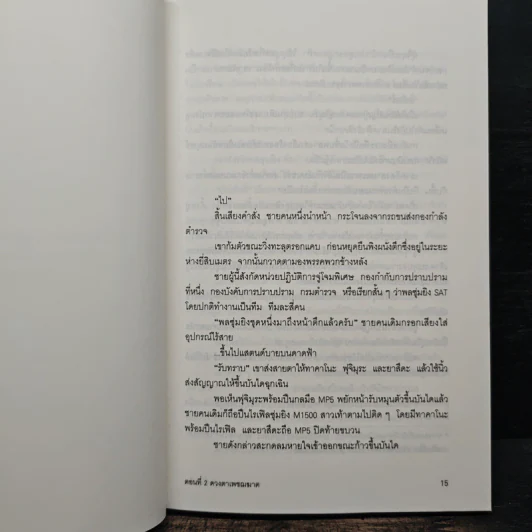 “ไป”
สิ้นเสียงคำสั่ง ชายคนหนึ่งนำหน้า กระโจนลงจากรถขนส่งกองกำลัง
ตำรวจ
เขาก้มตัวขณะวิ่งทะลุตรอกแคบ ก่อนหยุดยืนพิงผนังตึกซึ่งอยู่ในระยะ
ห่างยี่สิบเมตร จากนั้นกวาดตามองพรรคพวกข้างหลัง
ชายผู้นี้สังกัดหน่วยปฏิบัติการจู่โจมพิเศษ กองกำกับการปราบปราม
ที่หนึ่ง กองบังคับการปราบปราม กรมตำรวจ หรือเรียกสั้น ๆ ว่าพลซุ่มยิง SAT
โดยปกติทำงานเป็นทีม ทีมละสี่คน
“พลซุ่มยิงชุดหนึ่งมาถึงหน้าตึกแล้วครับ” ชายคนเดิมกรอกเสียงใส่
อุปกรณ์ไร้สาย
...ขึ้นไปแสตนด์บายบนดาดฟ้า
“รับทราบ” เขาส่งสายตาให้ทาคาโนะ ฟุจิมุระ และยาสึดะ แล้วใช้นิ้ว
ส่งสัญญาณให้ขึ้นบันไดฉุกเฉิน
พอเห็นฟุจิมุระพร้อมปืนกลมือ MP5 พยักหน้ารับหมุนตัวขึ้นบันไดแล้ว
ชายคนเดิมก็ถือปืนไรเฟิลซุ่มยิง M1500 สาวเท้าตามไปติด ๆ โดยมีทาคาโนะ
พร้อมปืนไรเฟิล และยาสึดะถือ MP5 ปิดท้ายขบวน
ชายดังกล่าวสะกดลมหายใจเข้าออกขณะก้าวขึ้นบันได
ตอนที่ 2 ดวงตาเพชฌฆาต 15